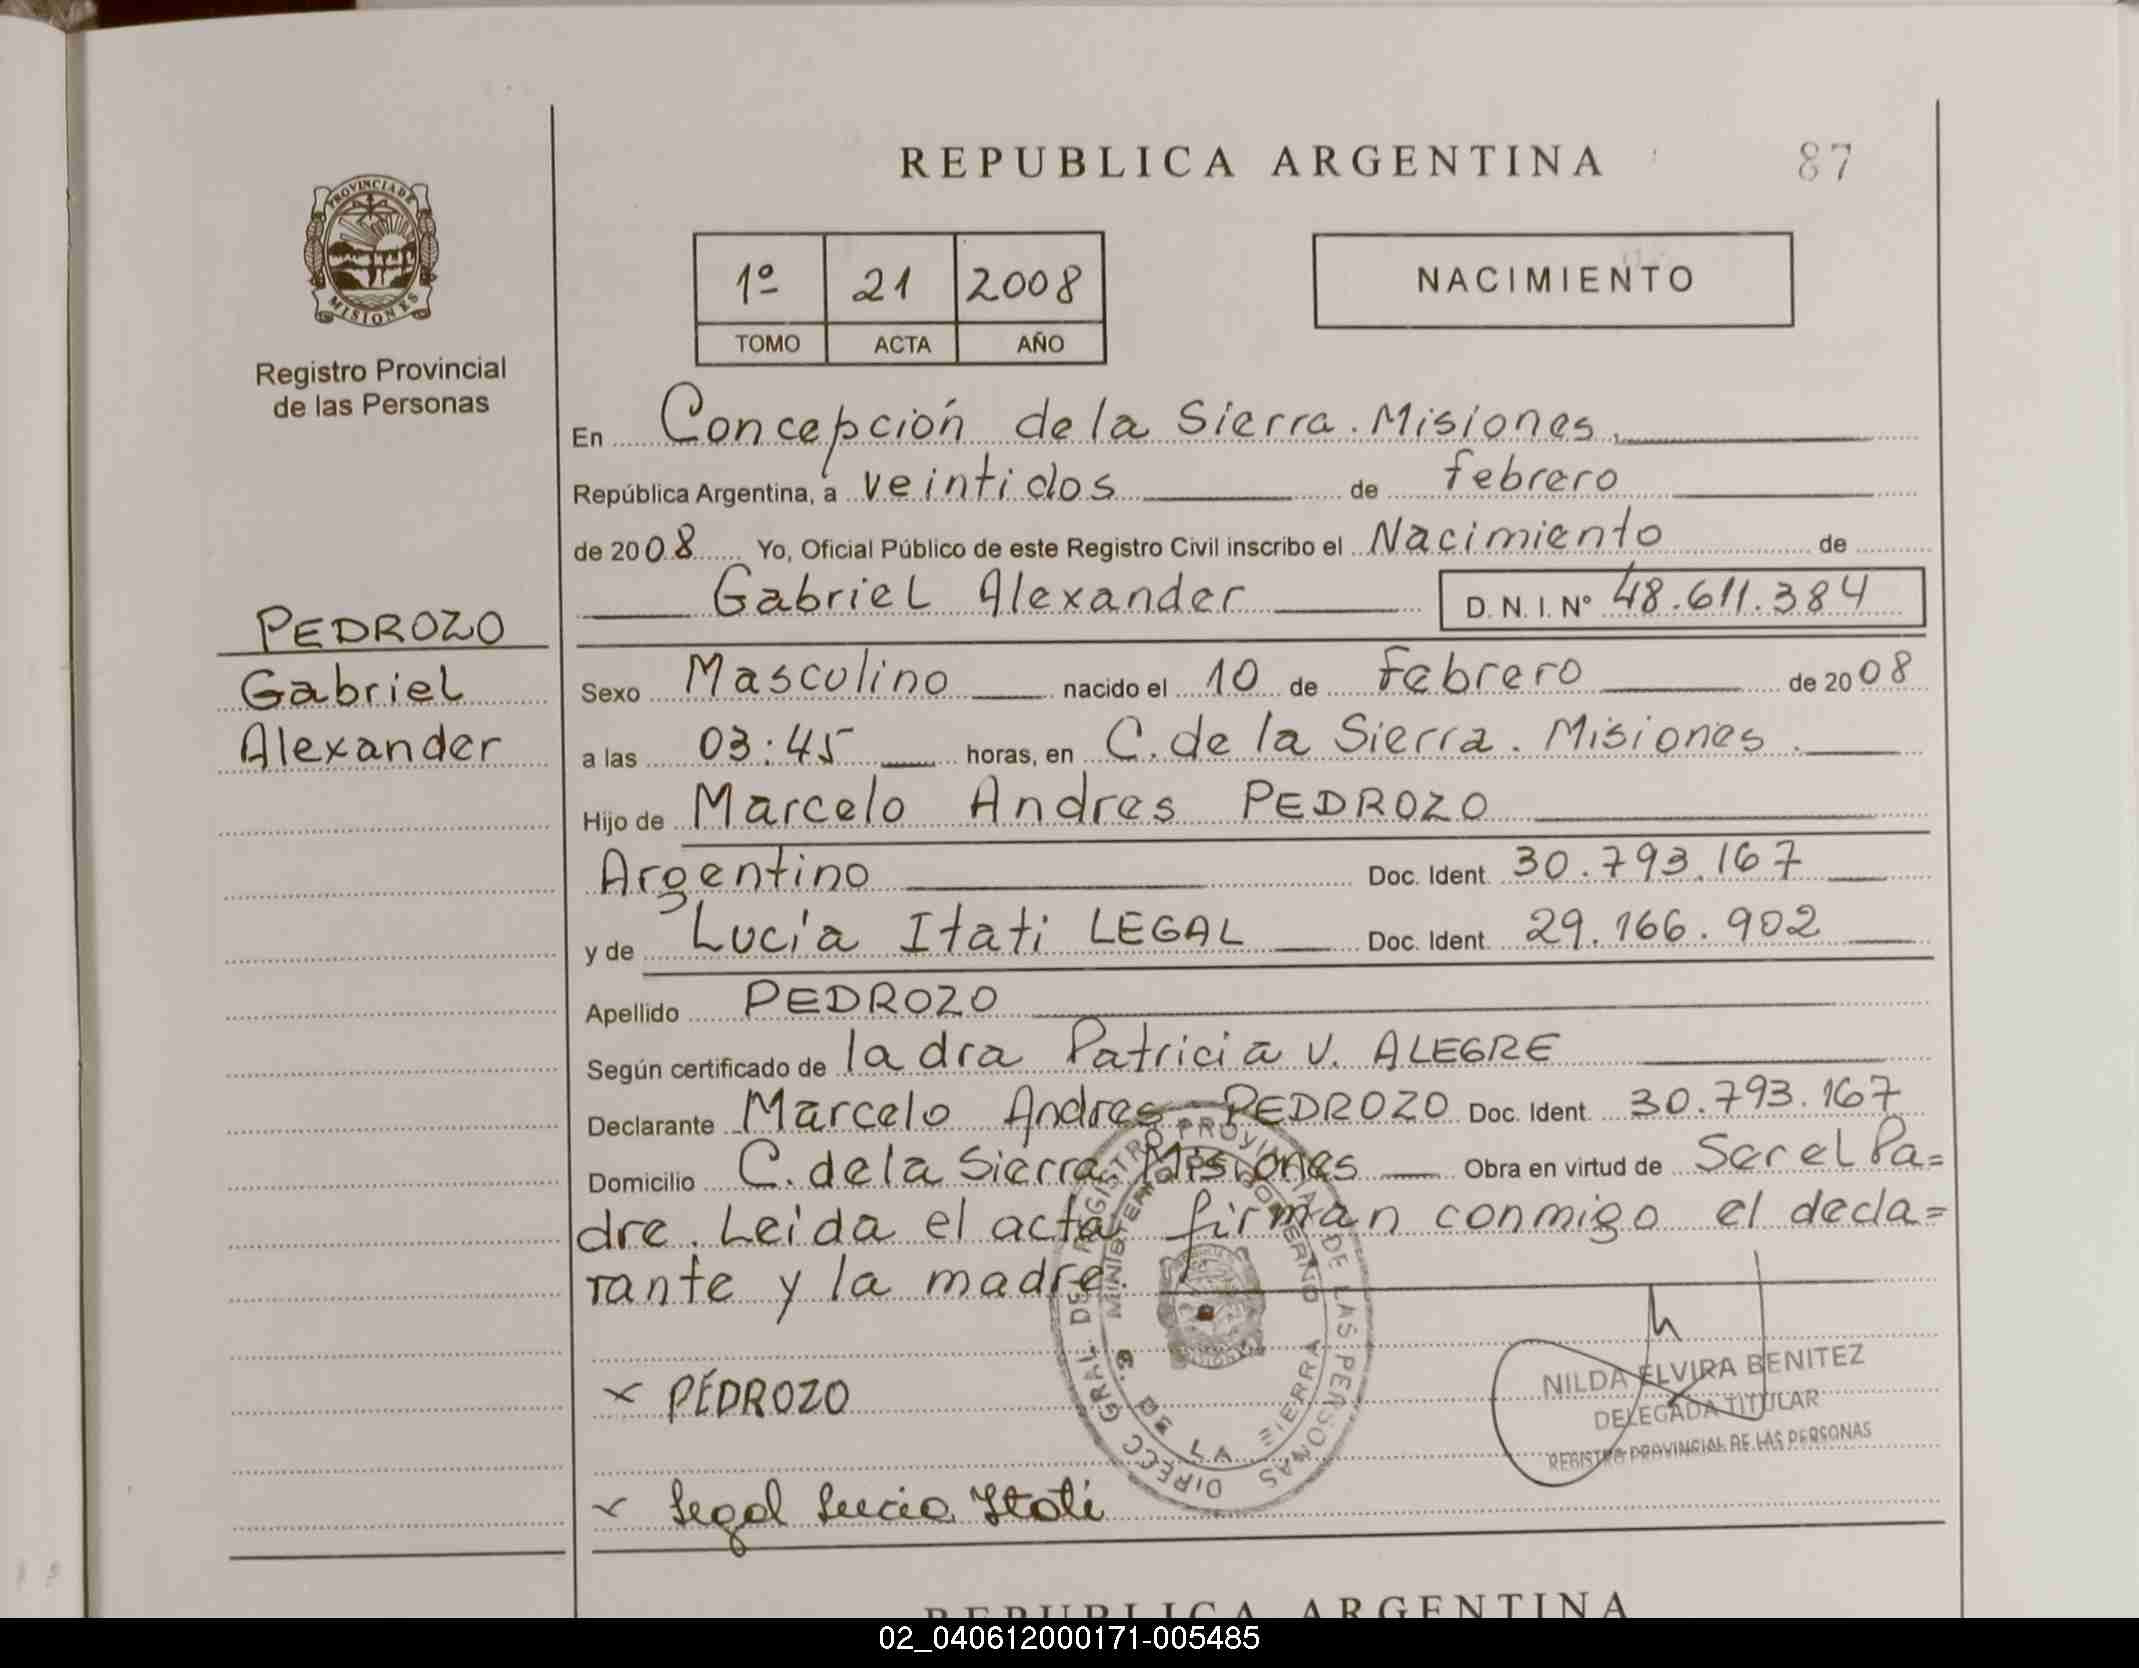 REPUBLICA ARGENTINA
87
PROVINCIA DE
MISIONES
Registro Provincial
de las Personas
1º 21 2008
TOMO ACTA AÑO
NACIMIENTO
En Concepción de la Sierra. Misiones.
República Argentina, a veintidos de febrero
de 2008 Yo, Oficial Público de este Registro Civil inscribo el Nacimiento de
Gabriel Alexander D. N. I. Nº 48.611.384
PEDROZO
Gabriel
Alexander
Sexo Masculino nacido el 10 de febrero de 2008
a las 03:45 horas, en C. de la Sierra. Misiones.
Hijo de Marcelo Andres PEDROZO
Argentino Doc. Ident. 30.793.167
y de Lucía Itati LEGAL Doc. Ident. 29.166.902
Apellido PEDROZO
Según certificado de la dra Patricia V. ALEGRE
Declarante Marcelo Andres PEDROZO Doc. Ident. 30.793.167
Domicilio C. de la Sierra Misiones Obra en virtud de Ser el Pa=
dre. Leida el acta firman conmigo el decla=
rante y la madre.
DIRECC GRAL. DEL REGISTRO PROVINCIAL DE LAS PERSONAS
MINISTERIO DE GOBIERNO
DE LA SIERRA
x PEDROZO
NILDA ELVIRA BENITEZ
DELEGADA TITULAR
REGISTRO PROVINCIAL DE LAS PERSONAS
x Legal Lucia Itati
REPUBLICA ARGENTINA
02_040612000171-005485